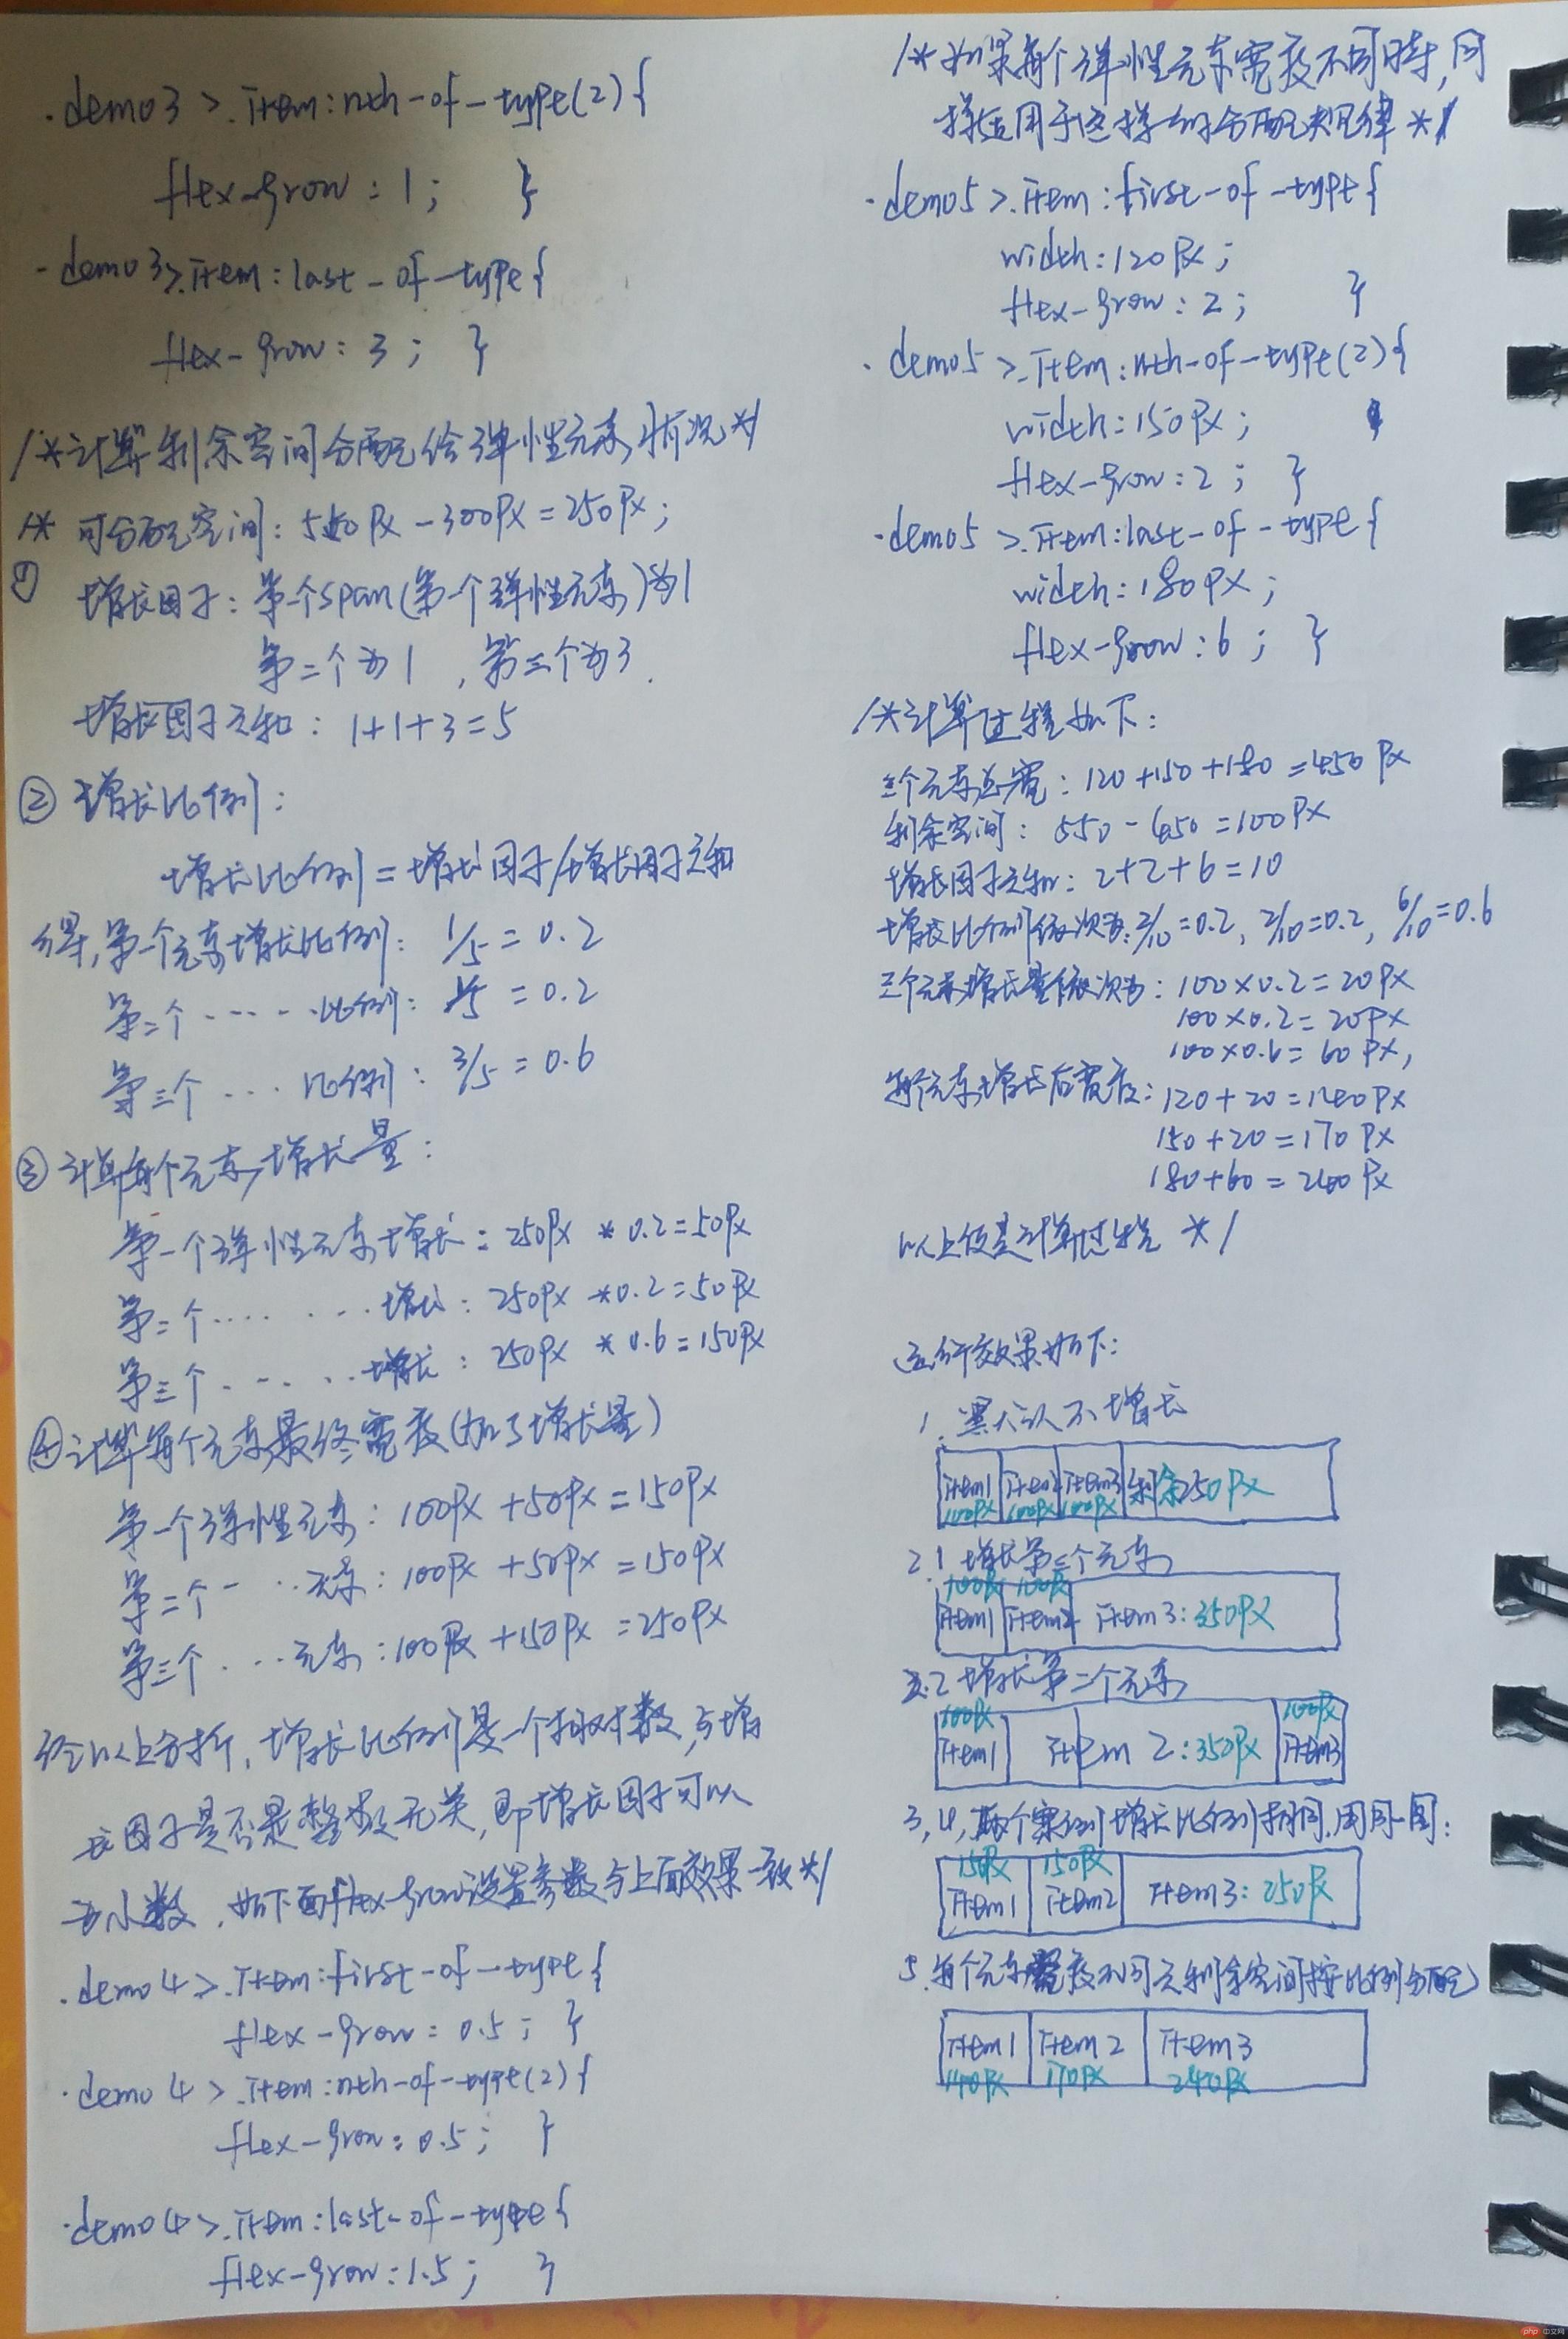 .demo3 >.item:nth-of-type(2){
flex-grow:1; }
.demo3>.item:last-of-type{
flex-grow:3; }
/*计算剩余空间分配给弹性元素情况*/
/* 可分配空间:550px-300px=250px;
① 增长因子:第一个span(第一个弹性元素)为1
第二个为1,第三个为3.
增长因子之和:1+1+3=5
② 增长比例:
增长比例=增长因子/增长因子之和
得,第一个元素增长比例:1/5=0.2
第二个.....比例:1/5=0.2
第三个...比例:3/5=0.6
③ 计算每个元素增长量:
第一个弹性元素增长:250px*0.2=50px
第二个.......增长:250px*0.2=50px
第三个.....增长:250px*0.6=150px
④计算每个元素最终宽度(加了增长量)
第一个弹性元素:100px+50px=150px
第二个...元素:100px+50px=150px
第三个...元素:100px+150px=250px
经以上分析,增长比例是一个相对数,与增
长因子是否是整数无关,即增长因子可以
为小数,如下面flex-grow设置参数与上面效果一致*/
.demo4>.item:first-of-type{
flex-grow:0.5; }
.demo4>.item:nth-of-type(2){
flex-grow:0.5; }
.demo4>.item:last-of-type{
flex-grow:1.5; }
/*如果每个弹性元素宽度不同时,同
样适用于这样的分配规律*/
.demo5>.item:first-of-type{
width:120px;
flex-grow:2; }
.demo5>.item:nth-of-type(2){
width:150px;
flex-grow:2; }
.demo5>.item:last-of-type{
width:180px;
flex-grow:6; }
/*计算过程如下:
三个元素总宽:120+150+180=450px
剩余空间:550-450=100px
增长因子之和:2+2+6=10
增长比例依次为:2/10=0.2,2/10=0.2,6/10=0.6
三个元素增长量依次为:100×0.2=20px
100×0.2=20px
100×0.6=60px,
每个元素增长后宽度:120+20=140px
150+20=170px
180+60=240px
以上便是计算过程*/
运行效果如下:
1.默认不增长
item1 item2 item3 剩余250px
100px 100px 100px
2.1 增长第三个元素
100px 100px
item1 item2 item3:350px
2.2增长第二个元素
100px 100px
item1 item2:350px item3
3,4,两个案例增长比例相同,用同一图:
150px 150px
item1 item2 item3:250px
5.每个元素宽度不同之剩余空间按比例分配
item1 item2 item3
140px 170px 240px
php 中文网